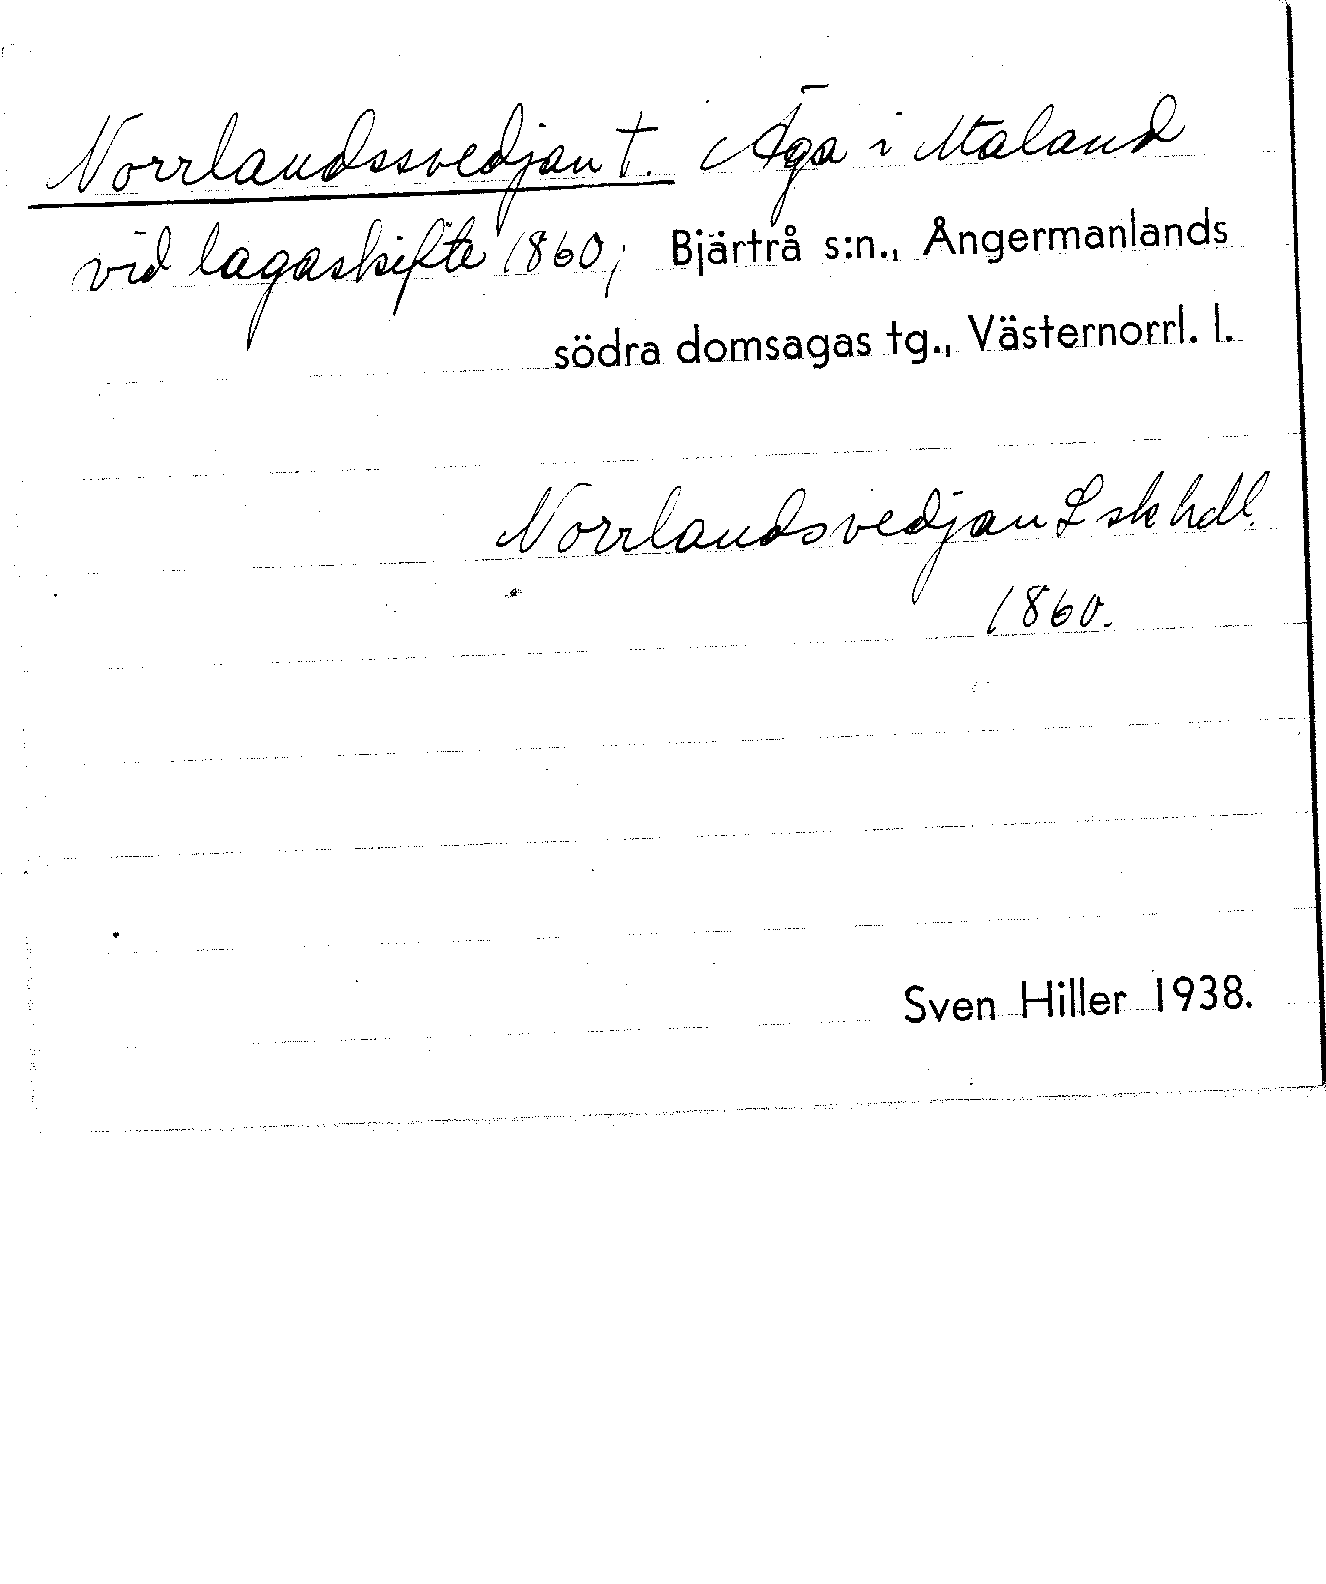 Norrlandssvedjan †. Äga i Maland
vid lagaskifte 1860; Bjärtrå s:n., Ångermanlands
södra domsagas tg., Västernorrl. l.
Norrlandsvedjan L sk hdl.
1860.
Sven Hiller 1938.